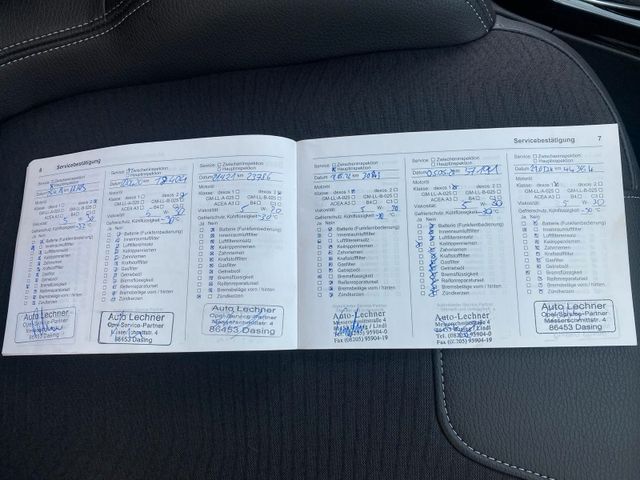 6
Servicebestätigung
Service: Zwischeninspektion
Hauptinspektion
Datum
Motoröl
Klasse: dexos 1 dexos 2
GM-LL-A-025 GM-LL-B-025
ACEA A3 B4 C3
Viskosität 5 W- 30
Gefrierschutz, Kühlflüssigkeit
Ja Nein
Batterie (Funkfernbedienung)
Innenraumluftfilter
Luftfiltereinsatz
Keilrippenriemen
Zahnriemen
Kraftstofffilter
Gasfilter
Getriebeöl
Bremsflüssigkeit
Reifenreparaturset
Bremsbeläge vorn / hinten
Zündkerzen
Auto Lechner
Opel-Service-Partner
Messerschmittstr. 4
86453 Dasing
Service: Zwischeninspektion
Hauptinspektion
Datum
Motoröl
Klasse: dexos 1 dexos 2
GM-LL-A-025 GM-LL-B-025
ACEA A3 B4 C3
Viskosität 5 W- 30
Gefrierschutz, Kühlflüssigkeit
Ja Nein
Batterie (Funkfernbedienung)
Innenraumluftfilter
Luftfiltereinsatz
Keilrippenriemen
Zahnriemen
Kraftstofffilter
Gasfilter
Getriebeöl
Bremsflüssigkeit
Reifenreparaturset
Bremsbeläge vorn / hinten
Zündkerzen
Auto Lechner
Opel-Service-Partner
Messerschmittstr. 4
86453 Dasing
Service: Zwischeninspektion
Hauptinspektion
Datum km 23786
Motoröl
Klasse: dexos 1 dexos 2
GM-LL-A-025 GM-LL-B-025
ACEA A3 B4 C3
Viskosität 5 W- 30
Gefrierschutz, Kühlflüssigkeit
Ja Nein
Batterie (Funkfernbedienung)
Innenraumluftfilter
Luftfiltereinsatz
Keilrippenriemen
Zahnriemen
Kraftstofffilter
Gasfilter
Getriebeöl
Bremsflüssigkeit
Reifenreparaturset
Bremsbeläge vorn / hinten
Zündkerzen
Auto Lechner
Opel-Service-Partner
Messerschmittstr. 4
86453 Dasing
Servicebestätigung 7
Service: Zwischeninspektion
Hauptinspektion
Datum
Motoröl
Klasse: dexos 1 dexos 2
GM-LL-A-025 GM-LL-B-025
ACEA A3 B4 C3
Viskosität 5 W- 30
Gefrierschutz, Kühlflüssigkeit
Ja Nein
Batterie (Funkfernbedienung)
Innenraumluftfilter
Luftfiltereinsatz
Keilrippenriemen
Zahnriemen
Kraftstofffilter
Gasfilter
Getriebeöl
Bremsflüssigkeit
Reifenreparaturset
Bremsbeläge vorn / hinten
Zündkerzen
Auto-Lechner
Messerschmittstraße 4
Tel. (08205) 95904-0
Fax (08205) 95904-19
Service: Zwischeninspektion
Hauptinspektion
Datum
Motoröl
Klasse: dexos 1 dexos 2
GM-LL-A-025 GM-LL-B-025
ACEA A3 B4 C3
Viskosität 5 W- 30
Gefrierschutz, Kühlflüssigkeit
Ja Nein
Batterie (Funkfernbedienung)
Innenraumluftfilter
Luftfiltereinsatz
Keilrippenriemen
Zahnriemen
Kraftstofffilter
Gasfilter
Getriebeöl
Bremsflüssigkeit
Reifenreparaturset
Bremsbeläge vorn / hinten
Zündkerzen
Auto-Lechner
Messerschmittstraße 4
Tel. (08205) 95904-0
Fax (08205) 95904-19
Service: Zwischeninspektion
Hauptinspektion
Datum km 44364
Motoröl
Klasse: dexos 1 dexos 2
GM-LL-A-025 GM-LL-B-025
ACEA A3 B4 C3
Viskosität 5 W- 30
Gefrierschutz, Kühlflüssigkeit
Ja Nein
Batterie (Funkfernbedienung)
Innenraumluftfilter
Luftfiltereinsatz
Keilrippenriemen
Zahnriemen
Kraftstofffilter
Gasfilter
Getriebeöl
Bremsflüssigkeit
Reifenreparaturset
Bremsbeläge vorn / hinten
Zündkerzen
Auto Lechner
Opel-Service-Partner
Messerschmittstr. 4
86453 Dasing